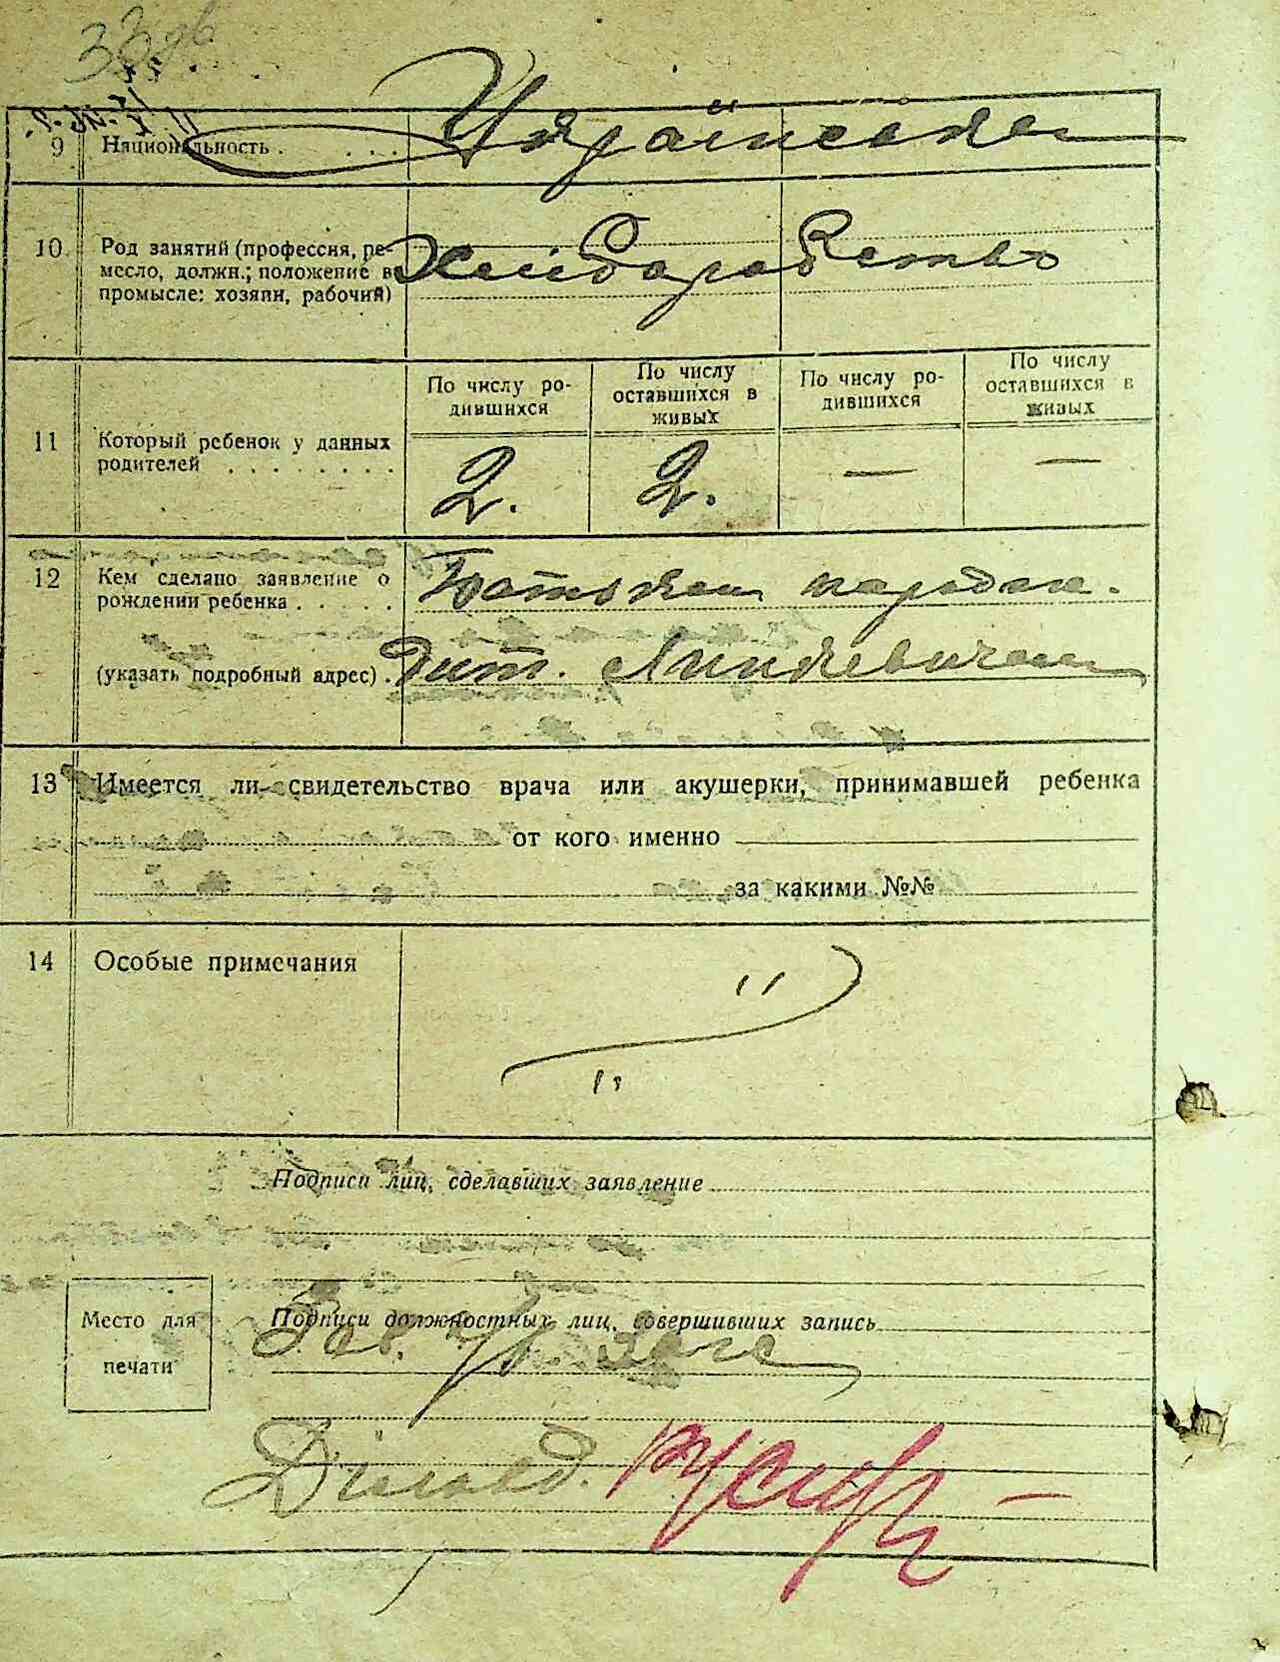 33 зв
9 Национальность . . . . . Українська
10 Род занятий (профессия, ре-
месло, должн.; положение в
промысле: хозяин, рабочий) Хліборобство
11 Который ребенок у данных
родителей . . . . . . . .
По числу ро-
дившихся
По числу
оставшихся в
живых
По числу ро-
дившихся
По числу
оставшихся в
живых
2. 2. — —
12 Кем сделано заявление о
рождении ребенка . . . . . Батьком
(указать подробный адрес) . дит. Линкевичем
13 Имеется ли свидетельство врача или акушерки, принимавшей ребенка
от кого именно
за какими №№
14 Особые примечания
Подписи лиц, сделавших заявление
Место для
печати
Подписи должностных лиц, совершивших запись
Діловод.